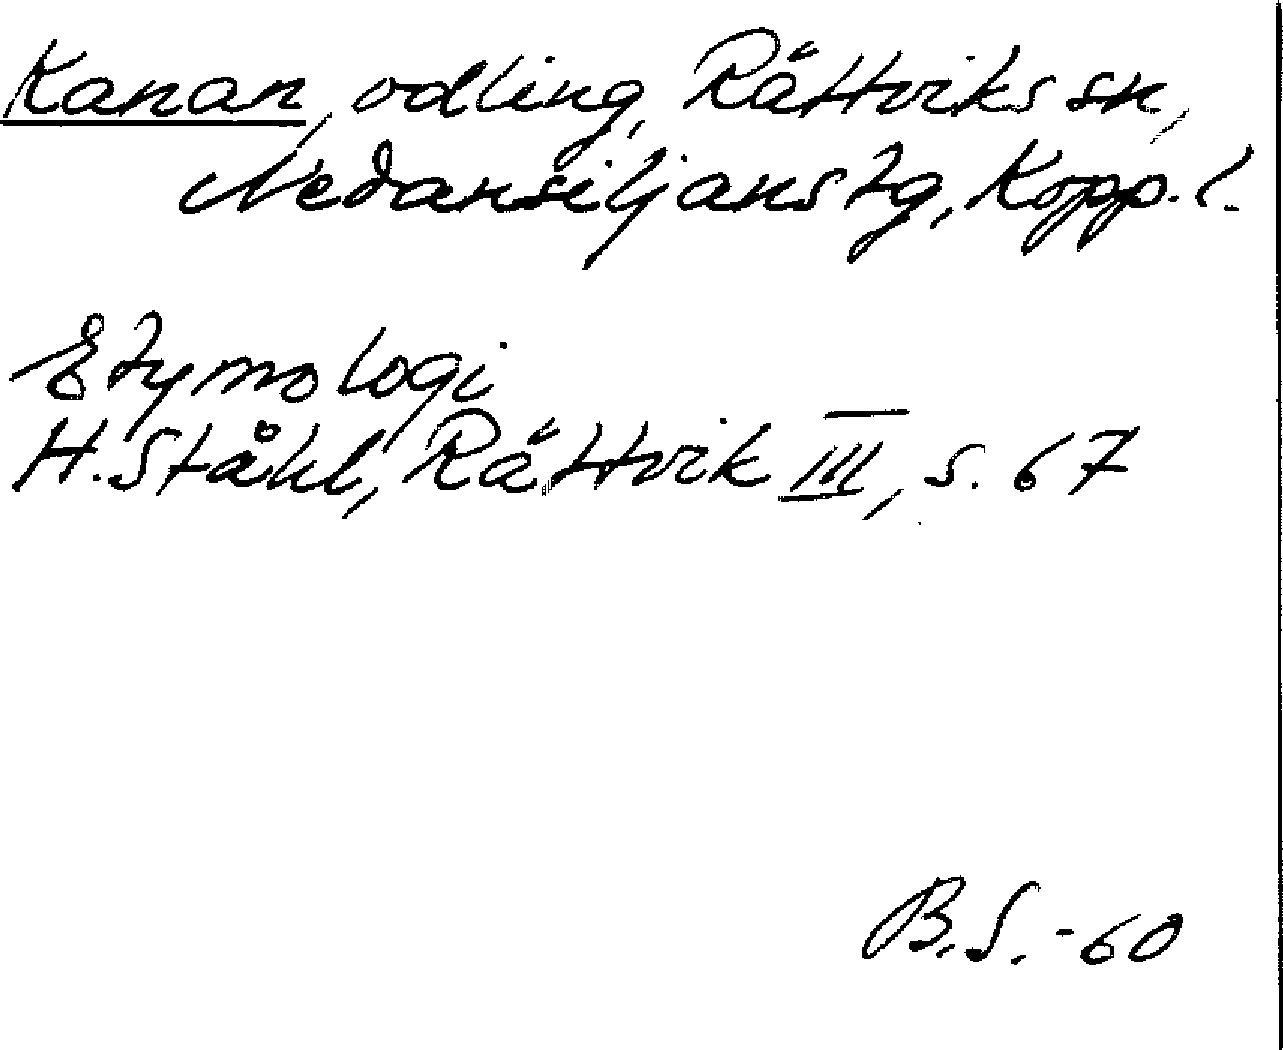 Kanan, odling, Rättviks sn,
Nedansiljans tg, Kopp. l.
Etymologi
H. Ståhl, Rättvik III, s. 67
B.S. -60